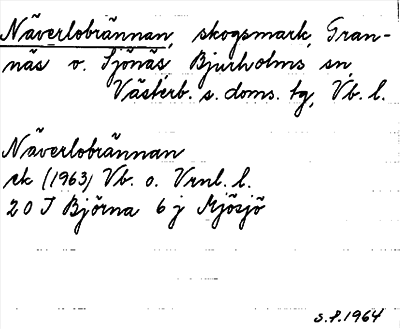 Näverlobrännan, skogsmark, Gran-
näs o. Sjönäs, Bjurholms sn,
Västerb. s. doms. tg, Vb. l.
Näverlobrännan
ek (1963) Vb. o. Vrnl. l.
20 J Björna 6 j Mjösjö
S.F. 1964